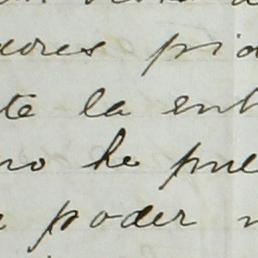 dores pid
te la ent
no he pue
poder